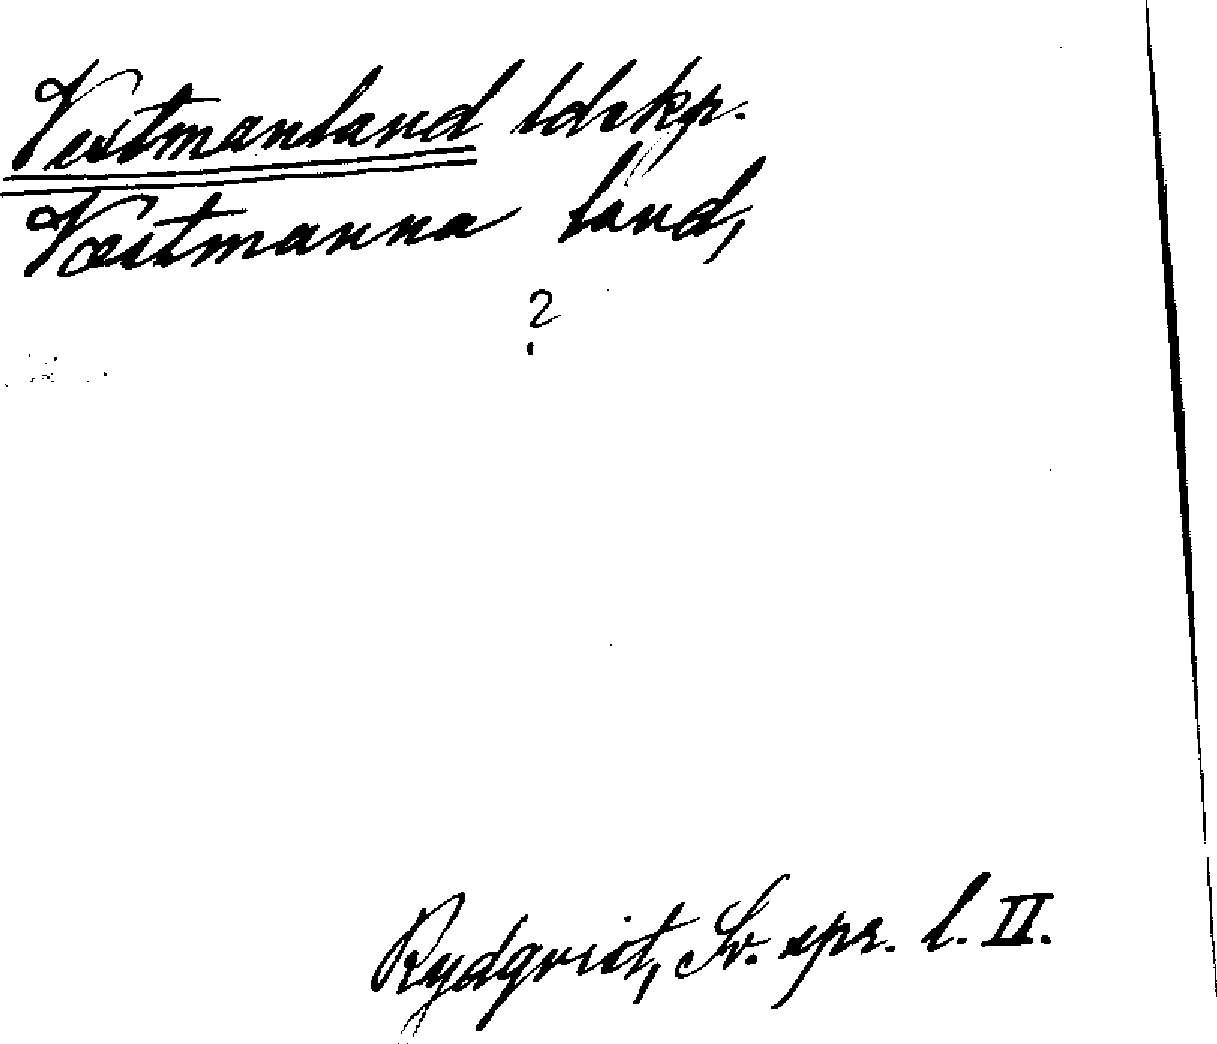 Vestmanland ldskp.
Væstmanna land,
?
Rydqvist, Sv. spr. l. II.